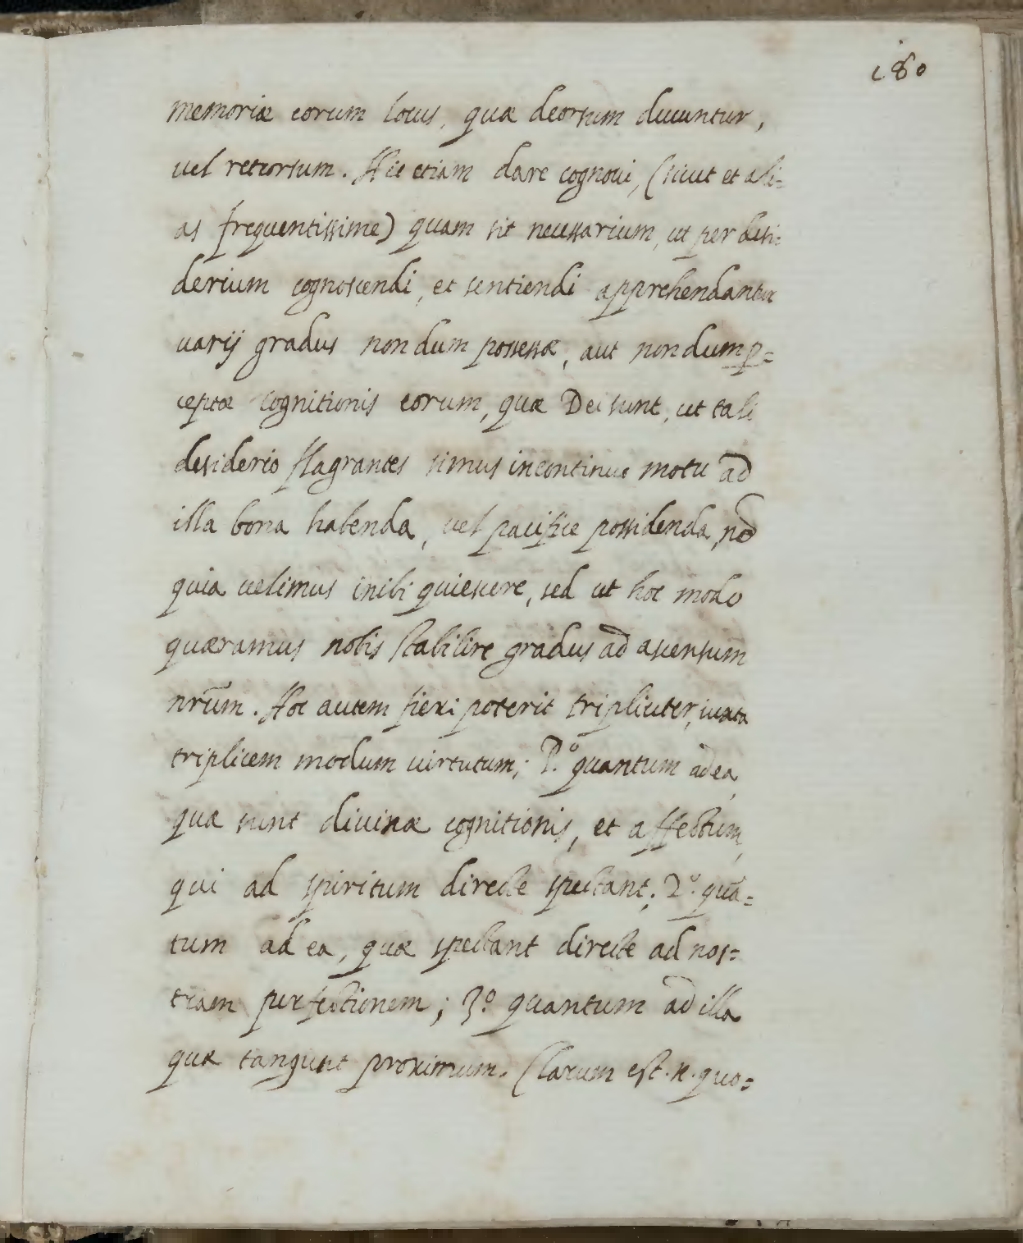 180
memoriæ eorum locus, quæ deorsum ducuntur,
vel retrorsum. Hic etiam clare cognovi, (sicut et ali=
as frequentissime) quam sit necessarium, ut per desi=
derium cognoscendi, et sentiendi apprehendantur
varij gradus nondum possessæ, aut nondum p=
ceptæ cognitionis eorum, quæ Dei sunt, ut tali
desiderio flagrantes simus in continuo motu ad
illa bona habenda, vel pacifice possidenda, nõ
quia velimus inibi quiescere, sed ut hoc modo
quæramus nobis stabilire gradus ad ascensum
nrũm. Hoc autem fieri poterit tripliciter, iuxta
triplicem modum virtutum; P.º quantum ad ea,
quæ sunt divinæ cognitionis, et affectum,
qui ad spiritum directe spectant; 2.º quã=
tum ad ea, quæ spectant directe ad nos=
tram perfectionem; 3.º quantum ad illa
quæ tangunt proximum. Clarum est .n. quo=